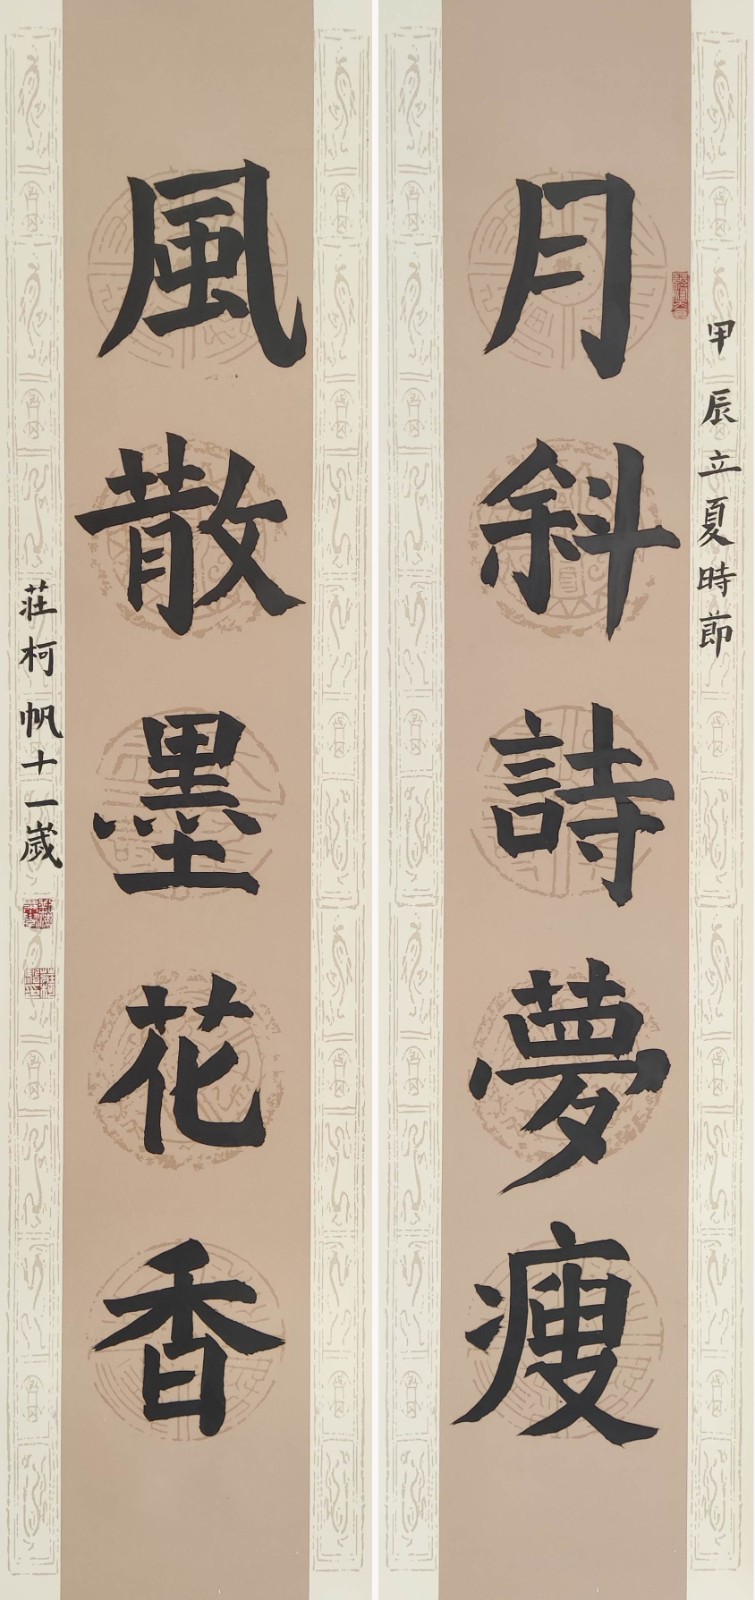 甲辰立夏時節
月斜詩夢瘦
風散墨花香
莊柯帆十一歲